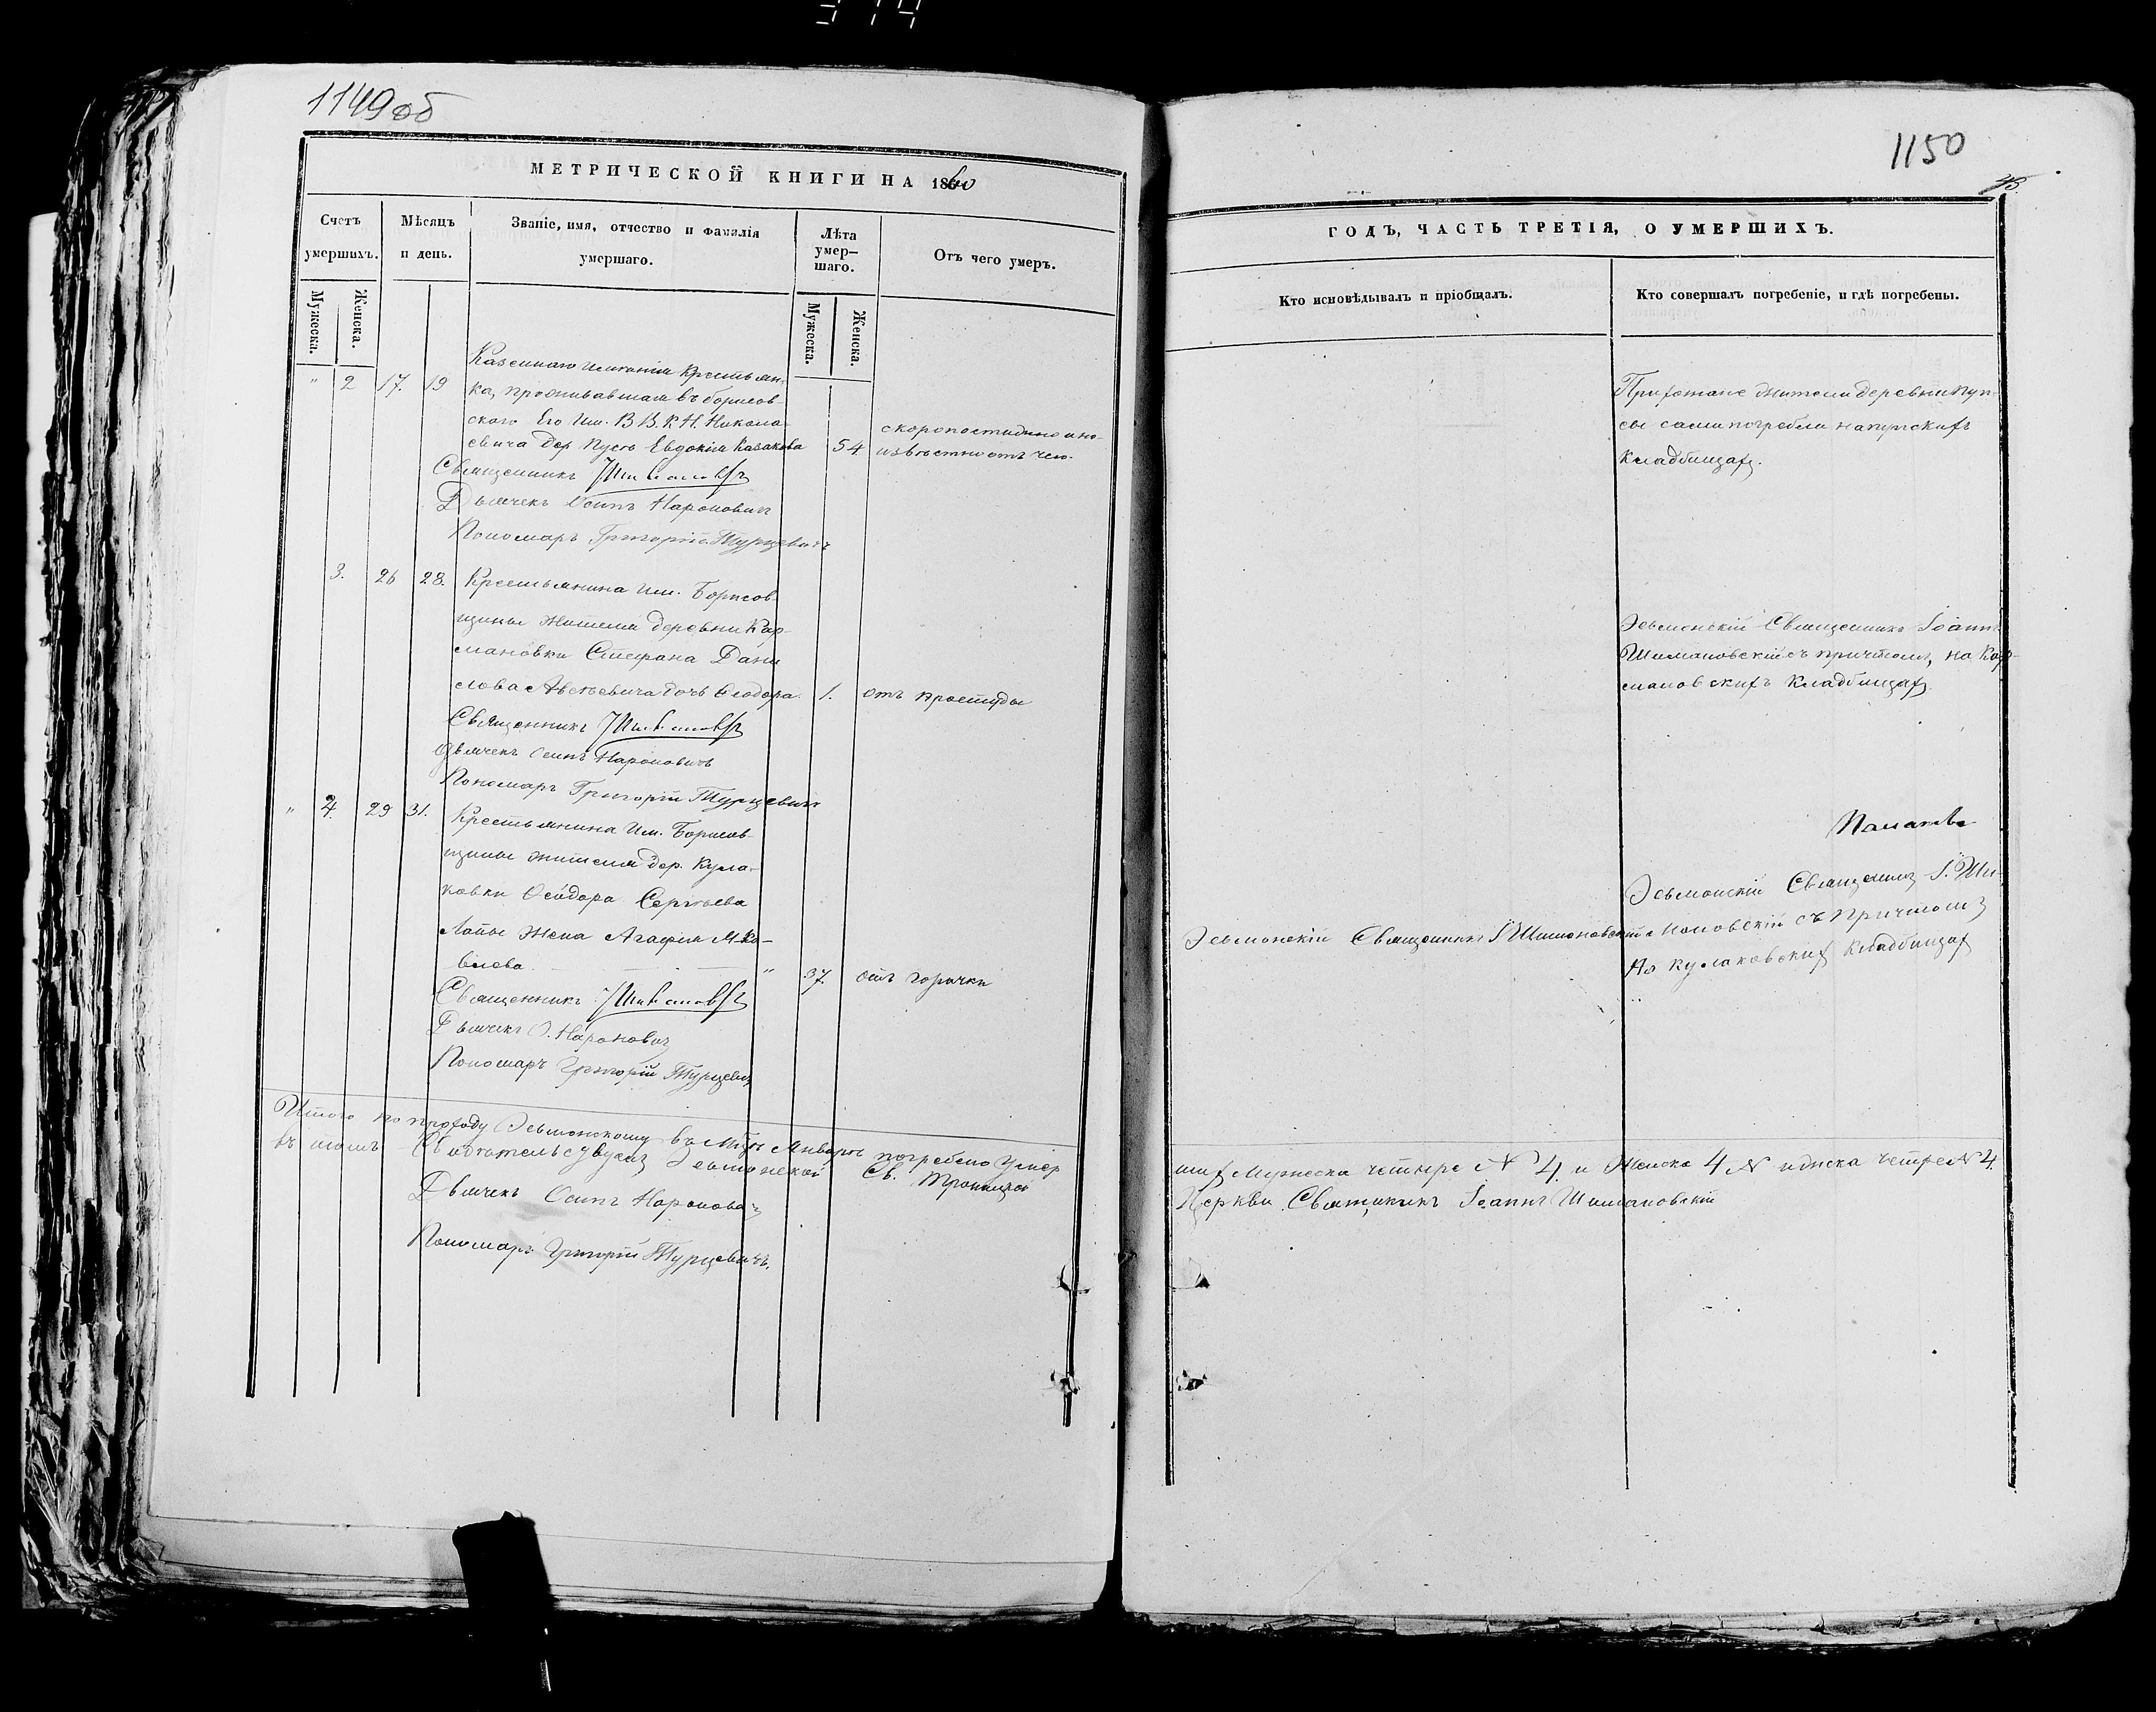 1149 об
МЕТРИЧЕСКОЙ КНИГИ НА 1860
Счетъ умершихъ.
Мужеска.
Женска.
Мѣсяцъ и день.
Званіе, имя, отчество и фамилія умершаго.
Лѣта умер-шаго.
Мужеска.
Женска.
Отъ чего умеръ.
" 2 17. 19
Казеннаго имѣнія Крестьян-
ка, проживавшая въ борисов-
скаго Его Им. В В. К. Н. Никола-
евича дер Евдокія Казакова
54
скоропостижно и не-
извѣстно отъ чего.
Священникъ
Дьячекъ Осипъ Нароновичъ
Пономарь Григорій Турцевичъ
3. 26 28.
Крестьянина Им. Борисов-
щины жителя деревни Кар-
мановки Стефана Дани
лова дочь Ѳеодора
1. отъ простуды
Священникъ
Дьячекъ Осипъ Нароновичъ
Пономарь Григорій Турцевичъ
" 4. 29 31.
Крестьянина Им. Борисов-
щины жителя дер. Кула-
ковки Ѳеодора Сергѣева
Лапы жена Агафія
" 37. отъ горячки
Священникъ
Дьячекъ О. Нароновичъ
Пономарь Григорій Турцевичъ
Итого по приходу Эсьмонскому въ Мцѣ Январѣ погребено Умер
въ томъ Свидѣтельствуемъ Эсьмонской Св. Троицкой
Дьячекъ Осипъ Нароновичъ
Пономарь Григорій Турцевичъ.
1150
ГОДЪ, ЧАСТЬ ТРЕТІЯ, О УМЕРШИХЪ.
Кто исповѣдывалъ и пріобщалъ.
Кто совершалъ погребеніе, и гдѣ погребены.
Прихожане жители деревни
сами погребли на
Кладбищахъ.
Эсьмонскій Священникъ Іоаннъ
Шимановскій съ причтомъ, на Кар-
мановскихъ Кладбищахъ
Эсьмонскій Священникъ І Шимановскій
Эсьмонскій Священникъ І. Ши-
мановскій съ Причтомъ
На Кулаковскихъ Кладбищахъ
шихъ Мужеска четыре № 4 и Женска 4 №
Церкви Священникъ Іоаннъ Шимановскій